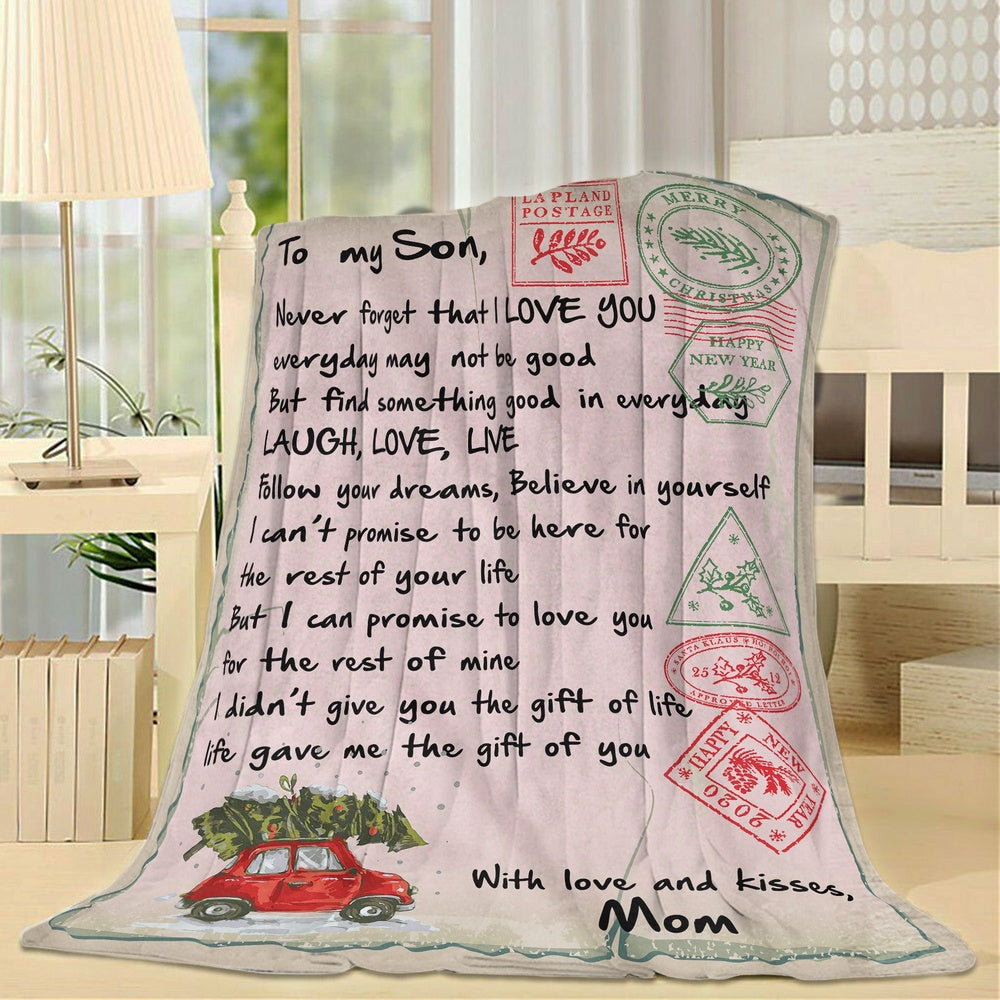 To my Son,
Never forget that I LOVE YOU
everyday may not be good
But find something good in everyday
LAUGH, LOVE, LIVE
Follow your dreams, Believe in yourself
I can't promise to be here for
the rest of your life
But I can promise to love you
for the rest of mine
I didn't give you the gift of life
life gave me the gift of you
With love and kisses,
Mom
LAPLAND
POSTAGE
MERRY
CHRISTMAS
HAPPY
NEW YEAR
SANTA KLAUS
25 12
APPROVED LETTER
HAPPY
NEW
YEAR
2020